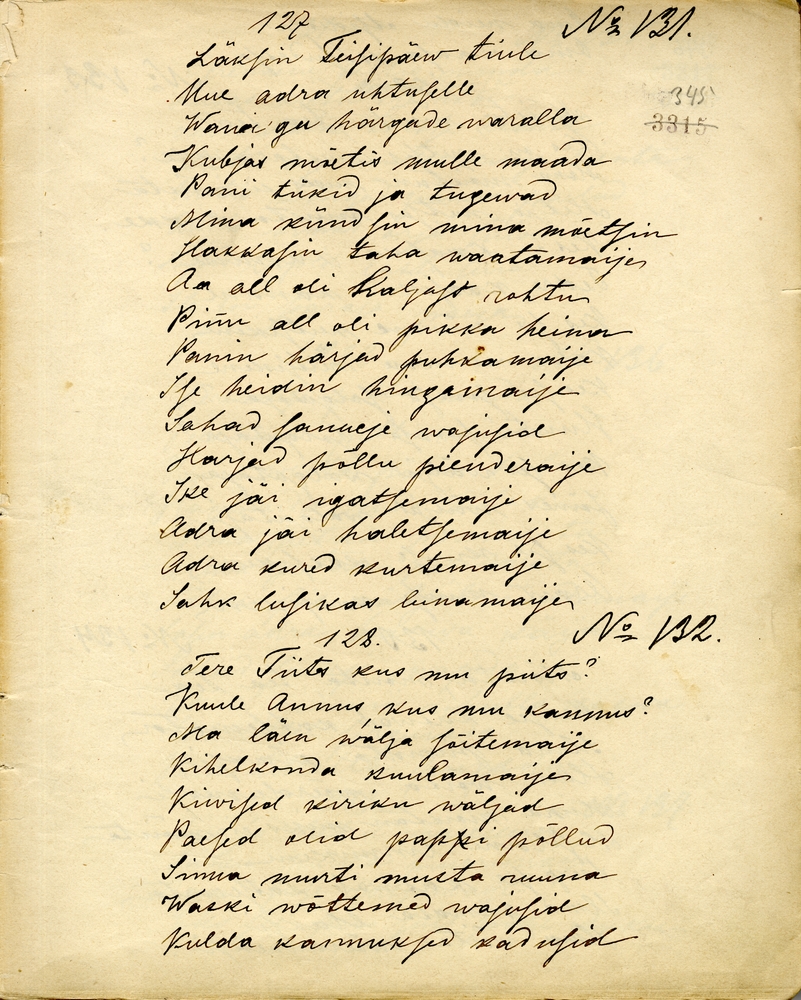 127 No 131.
Läksin Teisipäew tiule
345
Uue adra uhtuselle
3315
Wana gu härgade waralla
Kubjas mõetis mulle maada
Pani tükid ja tugewad
Mina kündsin mina mõetsin
Hakkasin taha waatamaije
Aa all oli kaljast rohtu
Pinu all oli pikka heina
Panin härjad puhkamaije
Ise heidin hingamaije
Sahad sanueje wajusid
Harjad põllu pienderaije
Ike jäi igatsemaije
Adra jäi haletsemaije
Adra kured kurtemaije
Sahk lusikas leinamaije
128. No 132.
Tere Tiits kus mu piits?
Kuule Annus kus mu kannus?
Ma läen wälja sõitemaije
Kihelkonda kuulamaije
Kiwised kiriku wäljad
Paesed olid pappi põllud
Sinna murti musta ruuna
Waski wõttemed wajusid
Kulda kannuksed kadusid